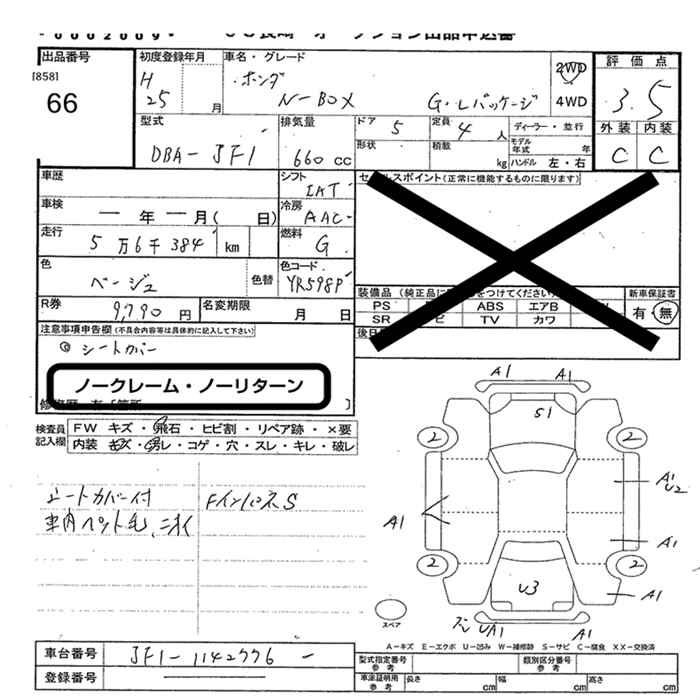 出品番号 初度登録年月 車名・グレード 評価点
[858] H ホンダ 2WD
66 25 月 N-BOX G・Lパッケージ 4WD 3.5
型式 排気量 ドア 5 定員 4人 ディーラー・並行 外装 内装
DBA-JF1 660 cc 形状 積載 kg モデル年式 年 C C
ハンドル 左・右
車歴 シフト IAT セールスポイント(正常に機能するものに限ります)
車検 ー年ー月( 日) 冷房 AAC
走行 5万6千384 km 燃料 G
色 ベージュ 色替 色コード YR598P
装備品 新車保証書
R券 9,790 円 名変期限 月 日 PS ABS エアB 有・無
SR TV カワ
注意事項申告欄(不具合内容等は具体的に記入して下さい)
◎ シートカバー
ノークレーム・ノーリターン
検査員記入欄 FW キズ・飛石・ヒビ割・リペア跡・×要
内装 キズ・汚レ・コゲ・穴・スレ・キレ・破レ
シートカバー付 FインパネS
車内ペット毛、ニオイ
A1 A1
S1
2 2
A1 U2
A1 A1
2 2
U3 A1
UA1 A1
スペア
A-キズ E-エクボ U-凹み W-補修跡 S-サビ C-腐食 XX-交換済
車台番号 JF1-1142776 型式指定番号 参考 類別区分番号 参考
登録番号 車庫証明用 参考 長さ cm 幅 cm 高さ cm